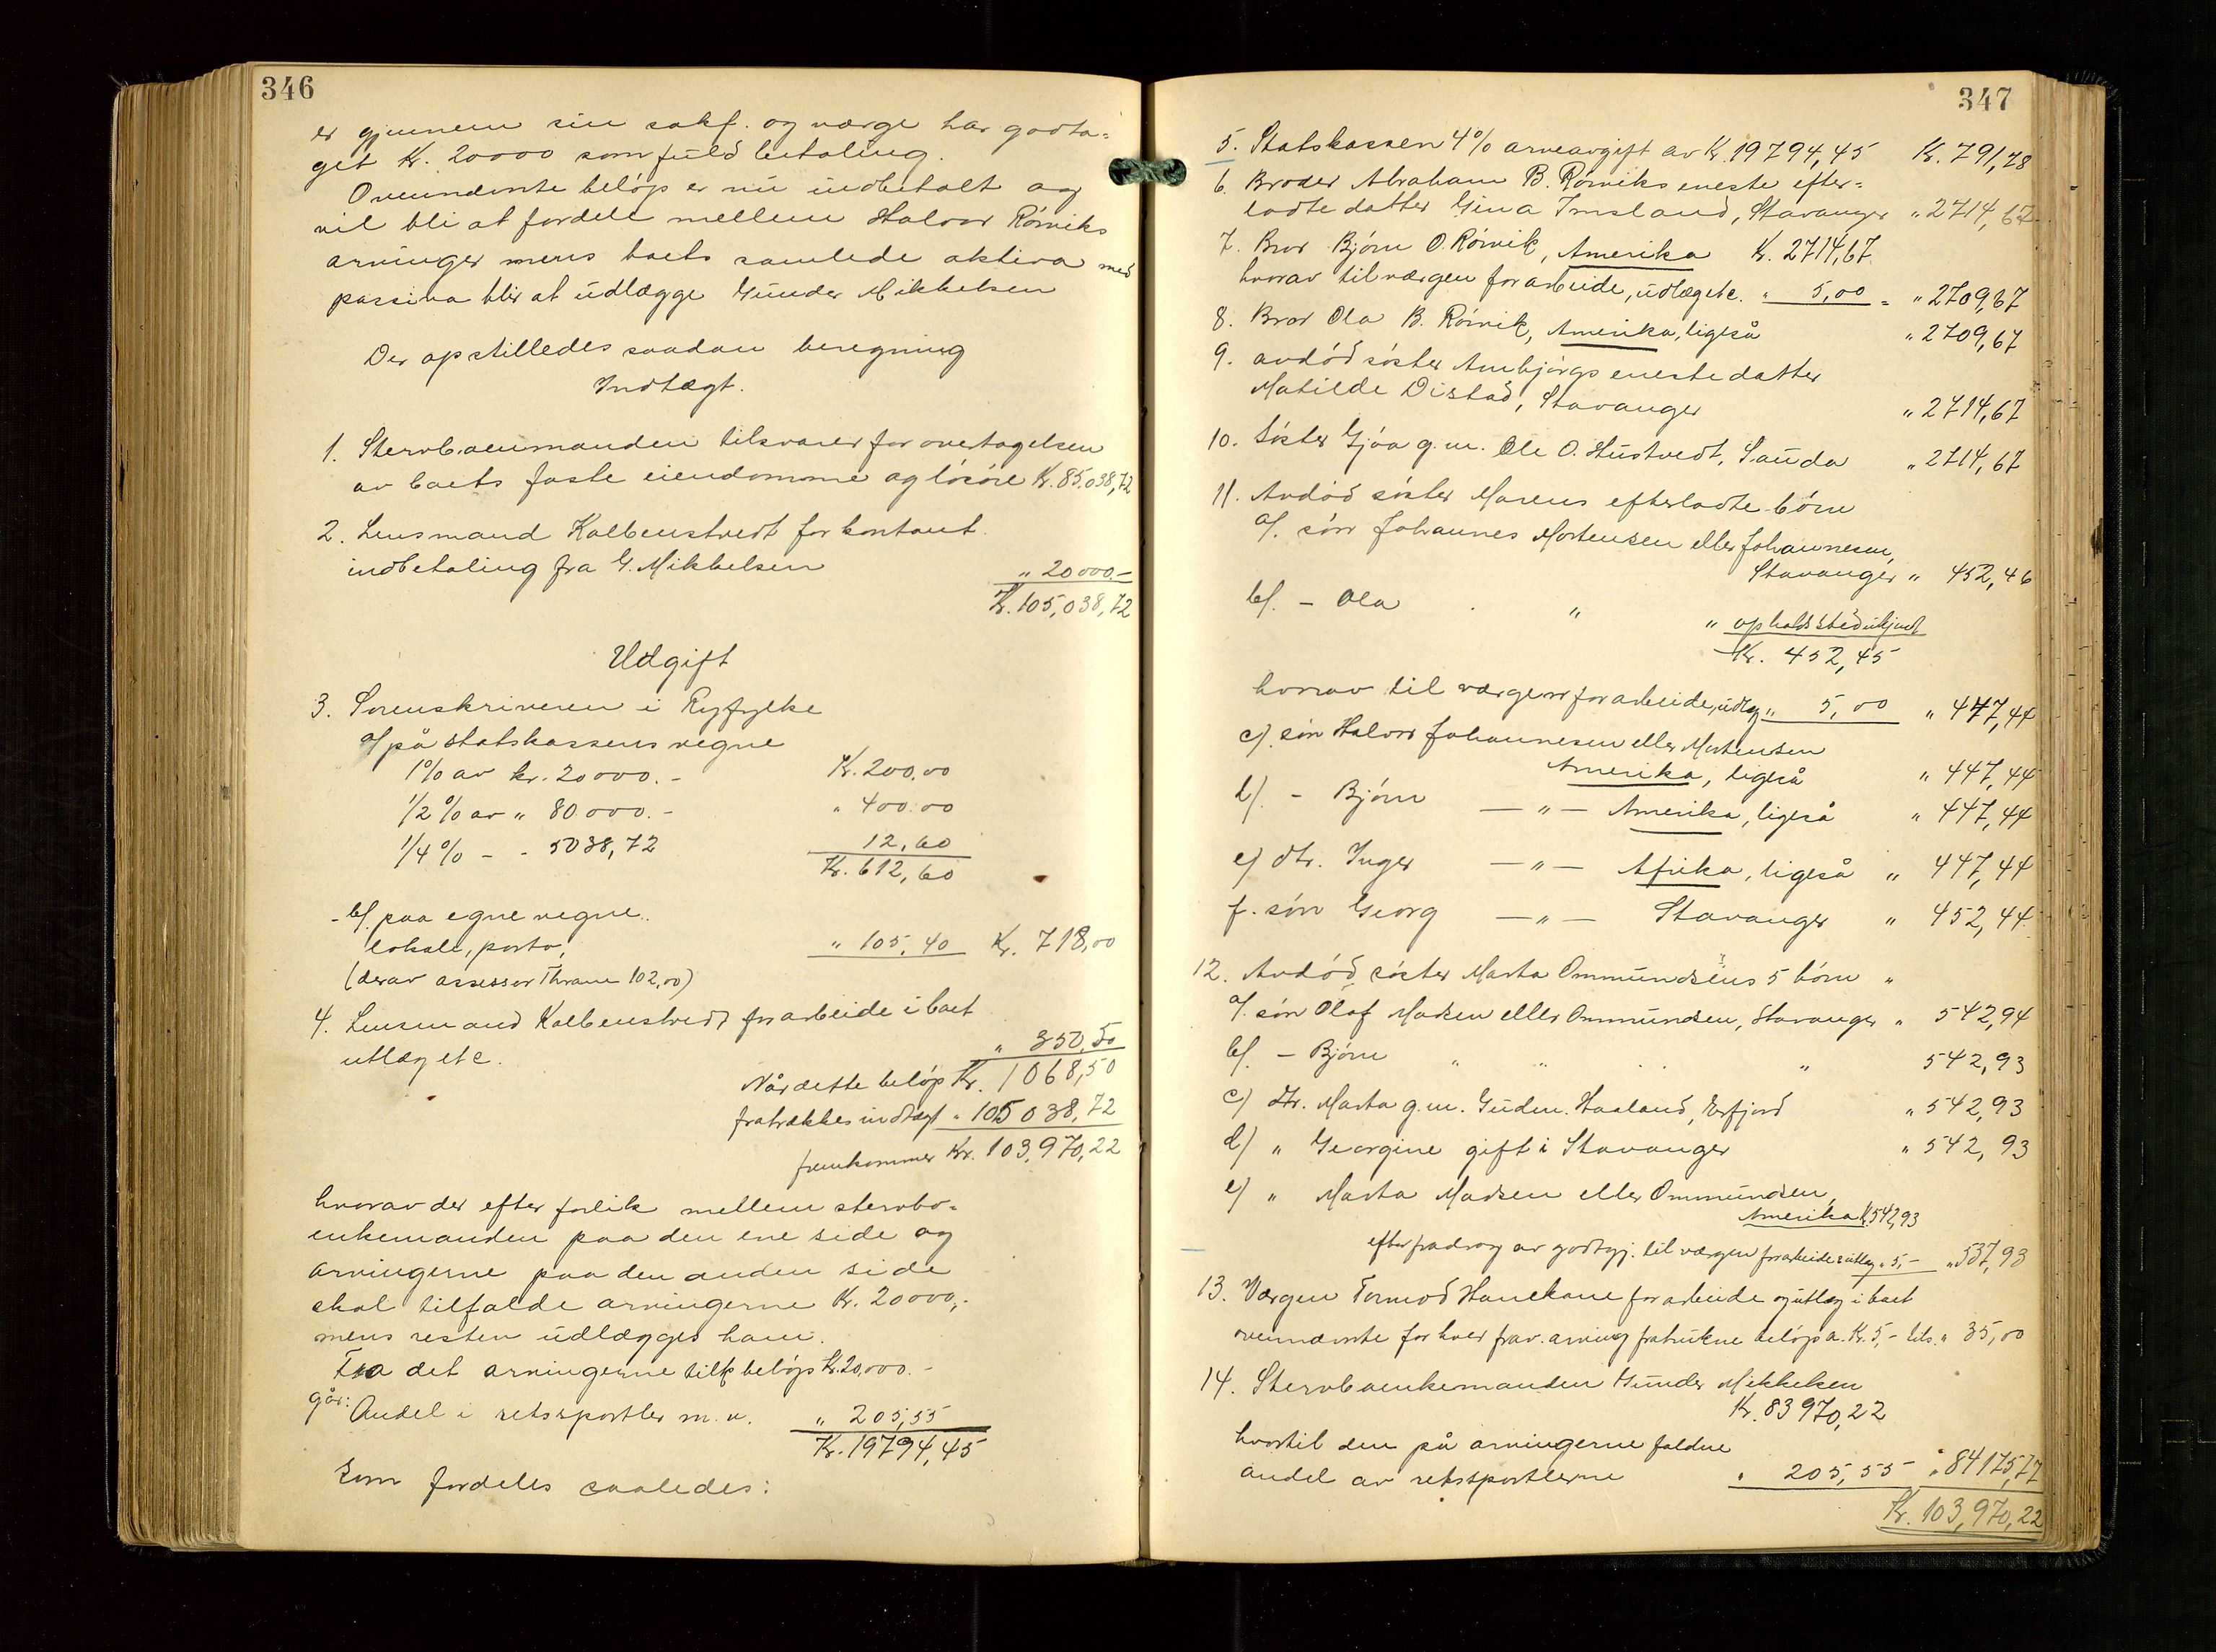 346
er gjennem sin sakf. og værge har godta-
get Kr. 20000 som fuld betaling.
Ovennævnte beløp er nu indbetalt og
vil bli at fordele mellem Halvor Rørviks
arvinger mens boets samlede aktiva med
passiva blir at udlægge Gunder Mikkelsen
Der opstilledes saadan beregning
Indtægt.
1. Stervboenmanden tilsvarer for overtagelsen
av boets faste eiendomme og løsøre Kr. 85.038,72
2. Lensmand Kolbenstvedt for kontant
indbetaling fra G. Mikkelsen
" 20000.-
Kr. 105,038,72
Udgift
3. Sorenskriveren i Ryfylke
a/ på statskassens vegne
1% av kr. 20000.- Kr. 200,00
1/2 % av " 80.000.- " 400.00
1/4 % - - 5038,72 12,60
Kr. 612,60
- b/. paa egne vegne..
lokale, porto, " 105,40 Kr. 718,00
(derav assessor Thrane 102,00)
4. Lensmand Kolbenstvedt for arbeide i boet
utlæg etc. " 350,50
Når dette beløp Kr. 1068,50
fratrækkes indtægt " 105038,72
fremkommer Kr. 103,970,22
hvorav der efter forlik mellem stervbo-
enkemanden paa den ene side og
arvingerne paa den anden side
skal tilfalde arvingerne Kr. 20000,-
mens resten udlægges ham.
Fra det arvingerne tilk beløp Kr. 20,000.-
går: Andel i retssportler m. v. " 205,55
Kr. 19794,45
som fordeles saaledes:
347
5. Statskassen 4% arveavgift av Kr. 19794,45 Kr. 791,78
6. Broder Abraham B. Rørviks eneste efter-
ladte datter Gina Imsland, Stavanger " 2714,67
7. Bror Bjørn O. Rørvik, Amerika Kr. 2714,67
hvorav til værgen for arbeide, udlæg etc. " 5,00 = " 2709,67
8. Bror Ola B. Rørvik, Amerika, ligeså " 2709,67
9. avdød søster Anbjørgs eneste datter
Matilde Distad, Stavanger " 2714,67
10. Søster Gjøa g. m. Ole O. Hustvedt, Sauda " 2714,67
11. Avdød søster Marens efterladte børn
a/. søn Johannes Mortensen eller Johannesen,
Stavanger " 452,46
b/. - Ola "
" opholdssted ukjendt
Kr. 452,45
hvorav til værgen for arbeide, udlæg " 5,00 " 447,44
c/. søn Halvor Johannesen eller Mortensen
Amerika, ligeså " 447,44
d/. - Bjørn — " — Amerika, ligeså " 447,44
e/ dtr. Inger — " — Afrika, ligeså " 447,44
f. søn Georg — " — Stavanger " 452,44
12. Avdød søster Marta Ommundsens 5 børn "
a/. søn Olaf Madsen eller Ommundsen, Stavanger " 542,94
b/. - Bjørn " " " 542,93
c/ dtr. Marta g. m. Gudm. Haaland, Erfjord " 542,93
d/ " Georgine gift i Stavanger " 542,93
e/ " Marta Madsen eller Ommundsen,
Amerika Kr. 542,93
efter fradrag av godtgj. til værgen for arbeide & utlæg " 5,- " 537,93
13. Værgen Tormod Hanekane for arbeide og utlæg i boet
ovennævnte for hver frav. arving fratrukne beløp a. Kr. 5,- tils. " 35,00
14. Stervboenkemanden Gunder Mikkelsen
Kr. 83970,22
hvortil den på arvingerne faldne
andel av retssportlerne " 205,55 " 84175,77
Kr. 103,970,22